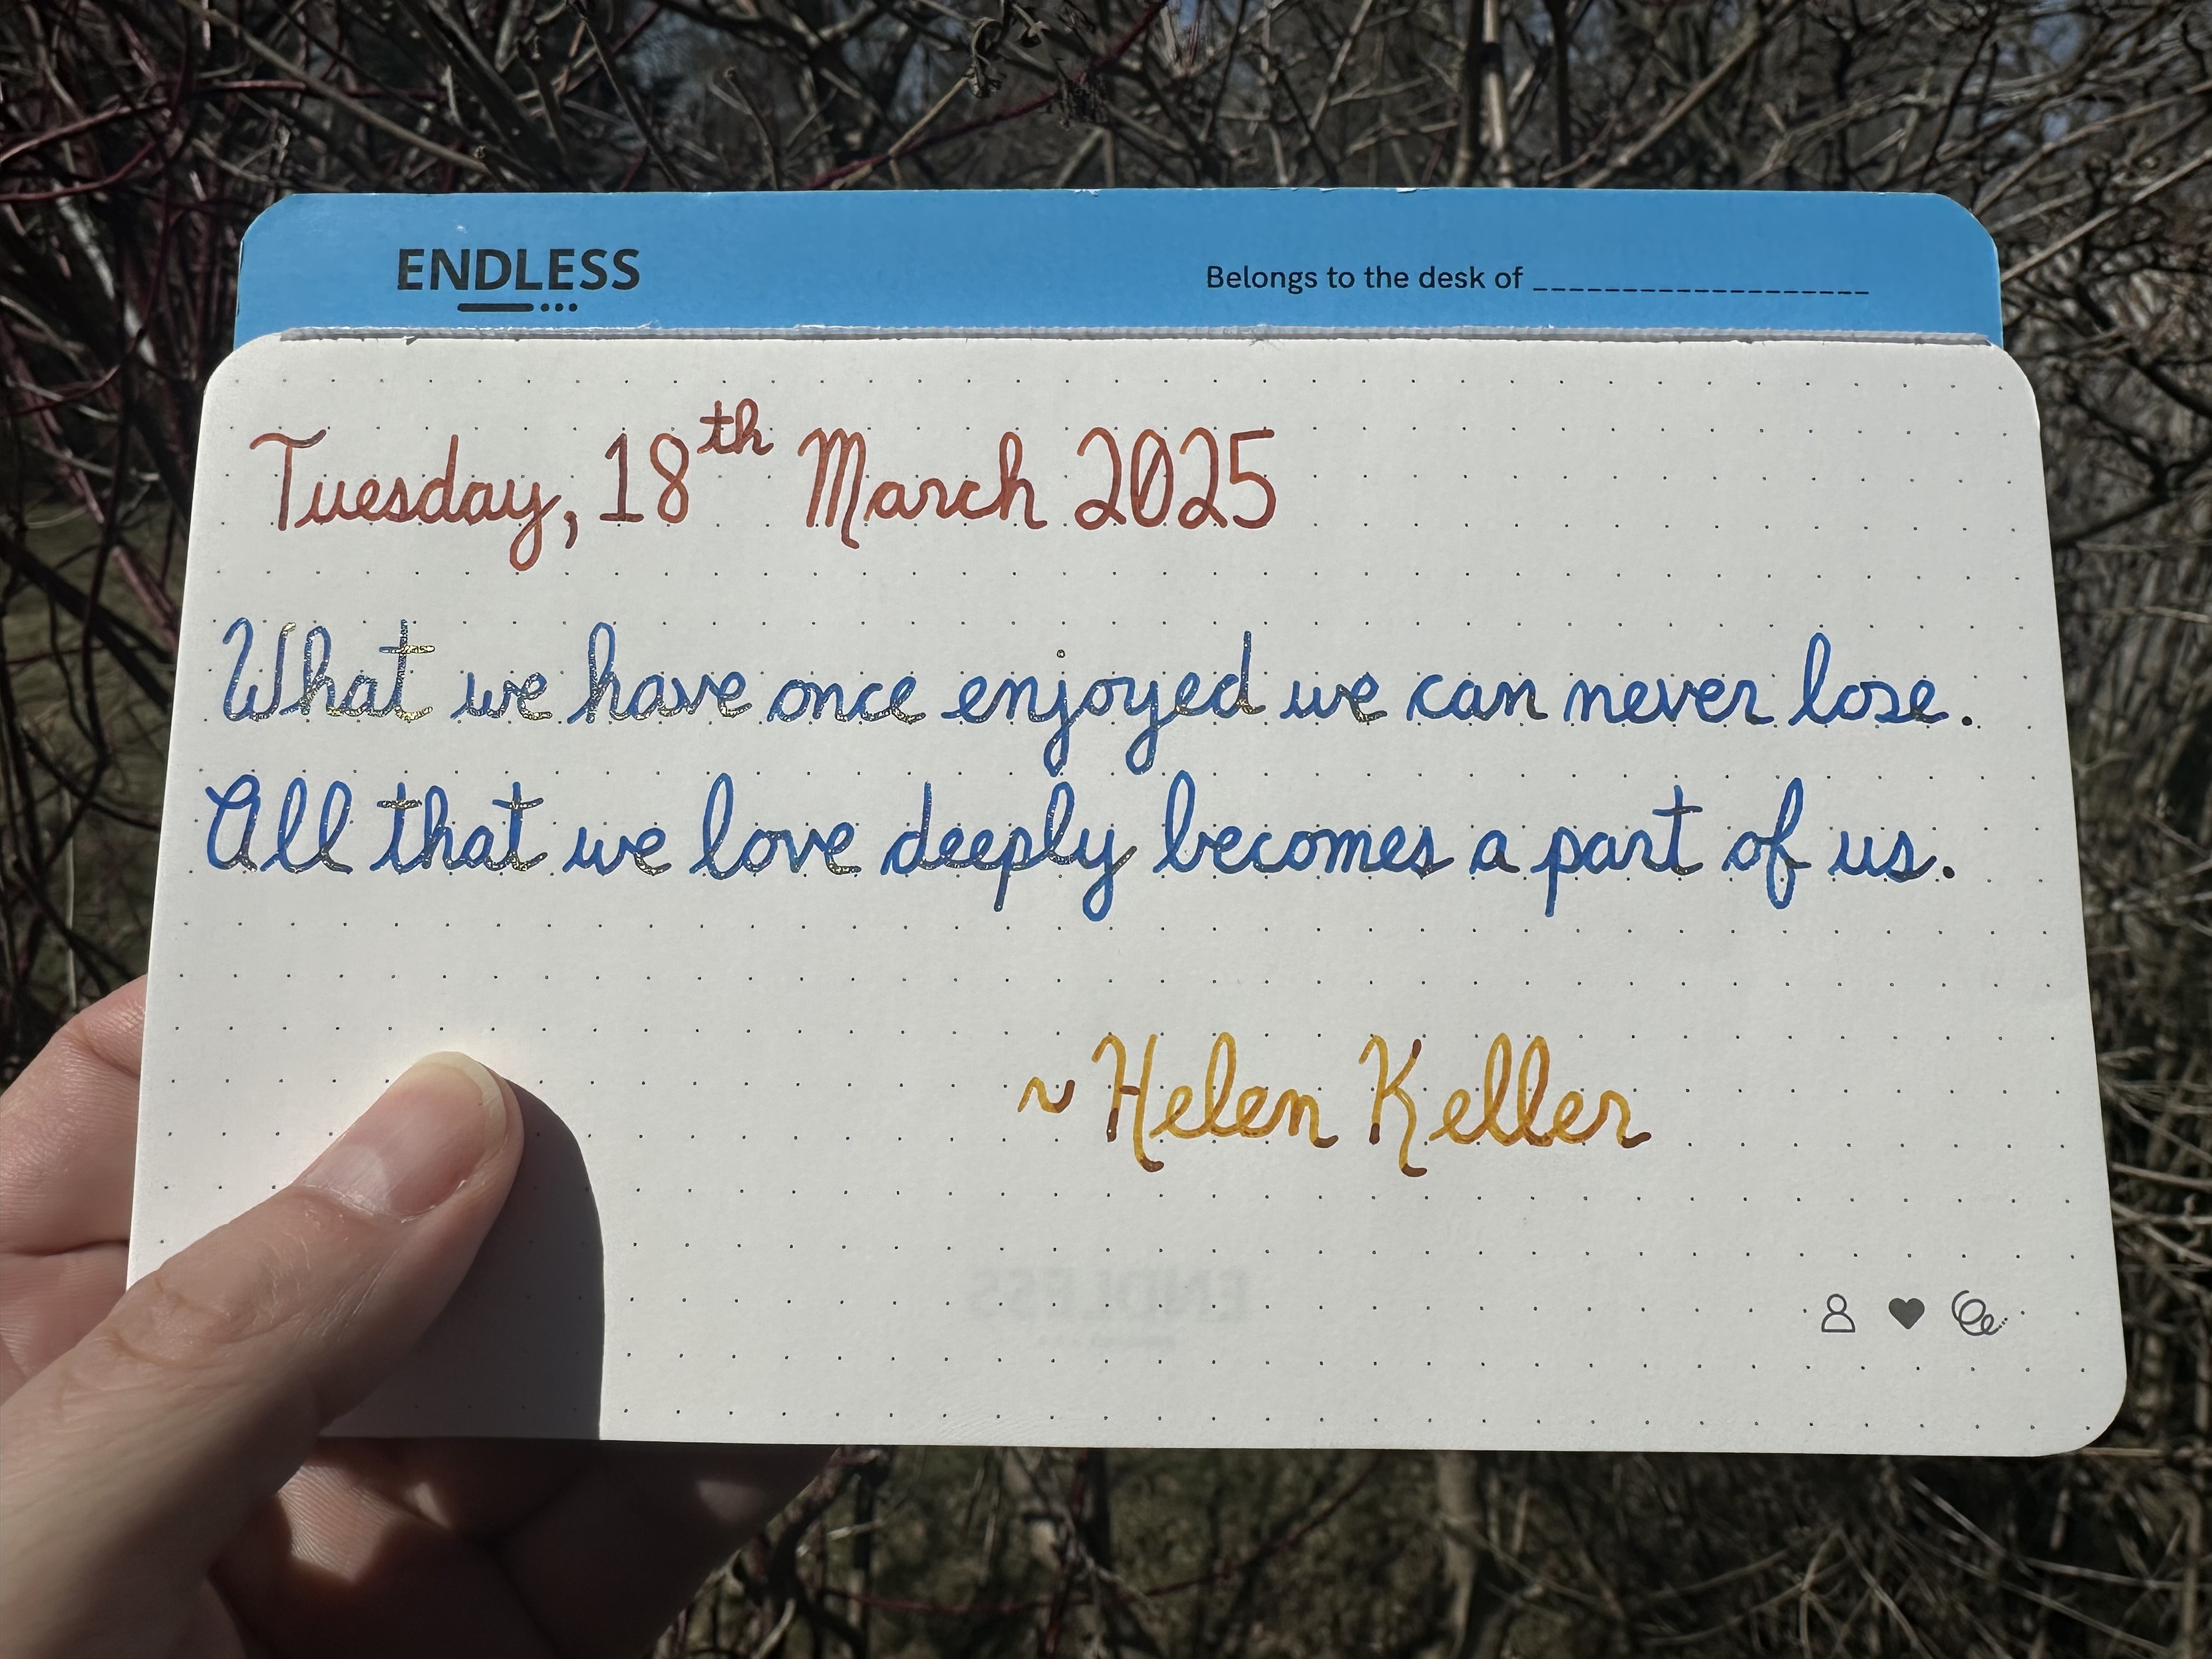 ENDLESS
Belongs to the desk of ____________________
Tuesday, 18th March 2025
What we have once enjoyed we can never lose.
All that we love deeply becomes a part of us.
~ Helen Keller
ENDLESS